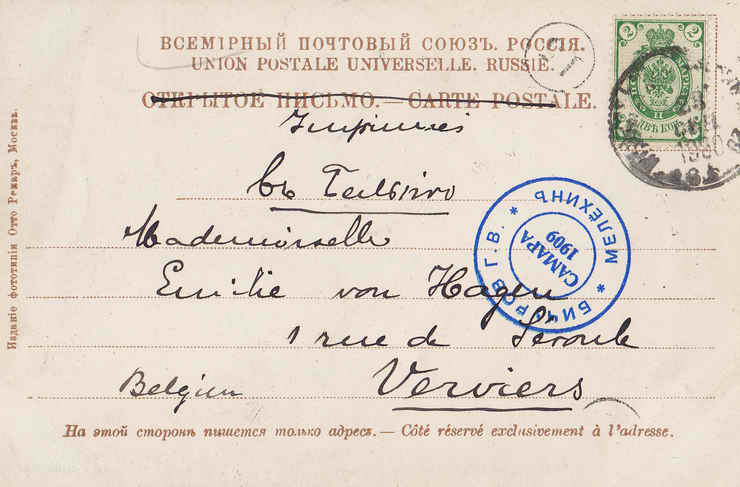 ВСЕМІРНЫЙ ПОЧТОВЫЙ СОЮЗЪ. РОССІЯ.
UNION POSTALE UNIVERSELLE. RUSSIE.
ОТКРЫТОЕ ПИСЬМО.—CARTE POSTALE.
Imprimés
въ
Mademoiselle
Emilie von Hagen
1 rue de Séroule
Belgien Verviers
На этой сторонѣ пишется только адресъ.—Côté réservé exclusivement à l'adresse.
Изданіе фототипіи Отто Ренаръ, Москва.
2 2
БИЧУРОВ Г. В. * МЕЛЁХИНЪ *
САМАРА
1909